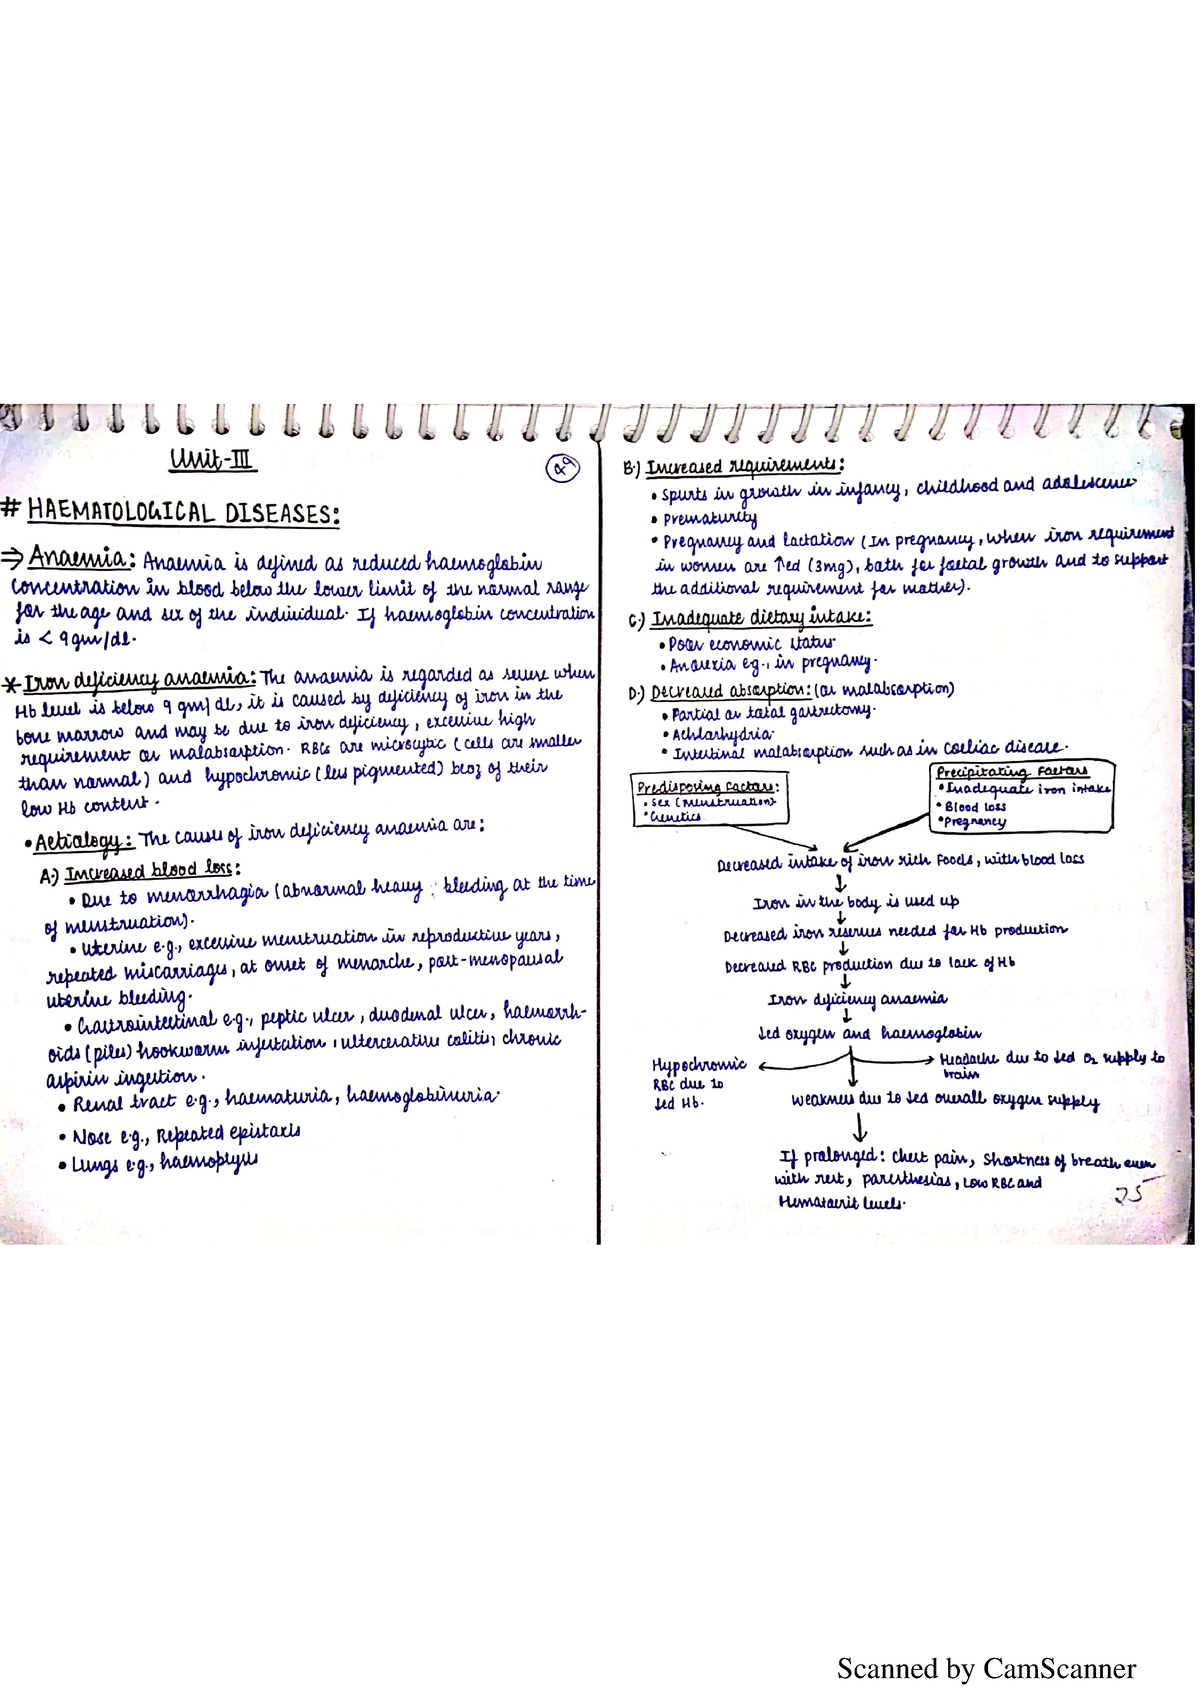 Unit-III
49
# HAEMATOLOGICAL DISEASES:
⇒ Anaemia: Anaemia is defined as reduced haemoglobin
concentration in blood below the lower limit of the normal range
for the age and sex of the individual. If haemoglobin concentration
is < 9 gm/dl.
* Iron deficiency anaemia: The anaemia is regarded as severe when
Hb level is below 9 gm/dl, it is caused by deficiency of iron in the
bone marrow and may be due to iron deficiency, excessive high
requirement or malabsorption. RBCs are microcytic (cells are smaller
than normal) and hypochromic (less pigmented) bcoz of their
low Hb content.
• Aetiology: The causes of iron deficiency anaemia are:
A.) Increased blood loss:
• Due to menorrhagia (abnormal heavy bleeding at the time
of menstruation).
• Uterine e.g., excessive menstruation in reproductive years,
repeated miscarriages, at onset of menarche, post-menopausal
uterine bleeding.
• Gastrointestinal e.g., peptic ulcer, duodenal ulcer, haemorrh-
oids (piles) hookworm infestation, ulcerative colitis, chronic
aspirin ingestion.
• Renal tract e.g., haematuria, haemoglobinuria.
• Nose e.g., Repeated epistaxis
• Lungs e.g., haemoptysis
B.) Increased requirements:
• Spurts in growth in infancy, childhood and adolescence
• Prematurity
• Pregnancy and lactation (In pregnancy, when iron requirement
in women are ↑ed (3mg), both for foetal growth and to support
the additional requirement for mother).
C.) Inadequate dietary intake:
• Poor economic status.
• Anorexia eg., in pregnancy.
D.) Decreased absorption: (or malabsorption)
• Partial or total gastrectomy.
• Achlorhydria.
• Intestinal malabsorption such as in coeliac disease.
Predisposing factors:
• Sex (menstruation)
• Genetics
Precipitating Factors
• Inadequate iron intake
• Blood loss
• Pregnancy
Decreased intake of iron rich foods, with blood loss
↓
Iron in the body is used up
↓
Decreased iron reserves needed for Hb production
↓
Decreased RBC production due to lack of Hb
↓
Iron deficiency anaemia
↓
↓ed oxygen and haemoglobin
Hypochromic
RBC due to
↓ed Hb.
Headache due to ↓ed O2 supply to
brain
Weakness due to ↓ed overall oxygen supply
↓
If prolonged: chest pain, shortness of breath even
with rest, paresthesias, low RBC and
Hematocrit levels.
25
Scanned by CamScanner